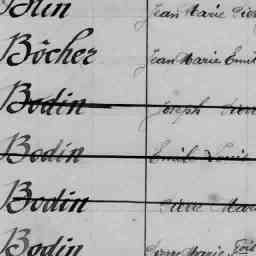 Blin Jean Marie
Bôcher Jean Marie Emil
Bodin Joseph
Bodin Emile Louis
Bodin Pierre
Bodin Pierre Marie